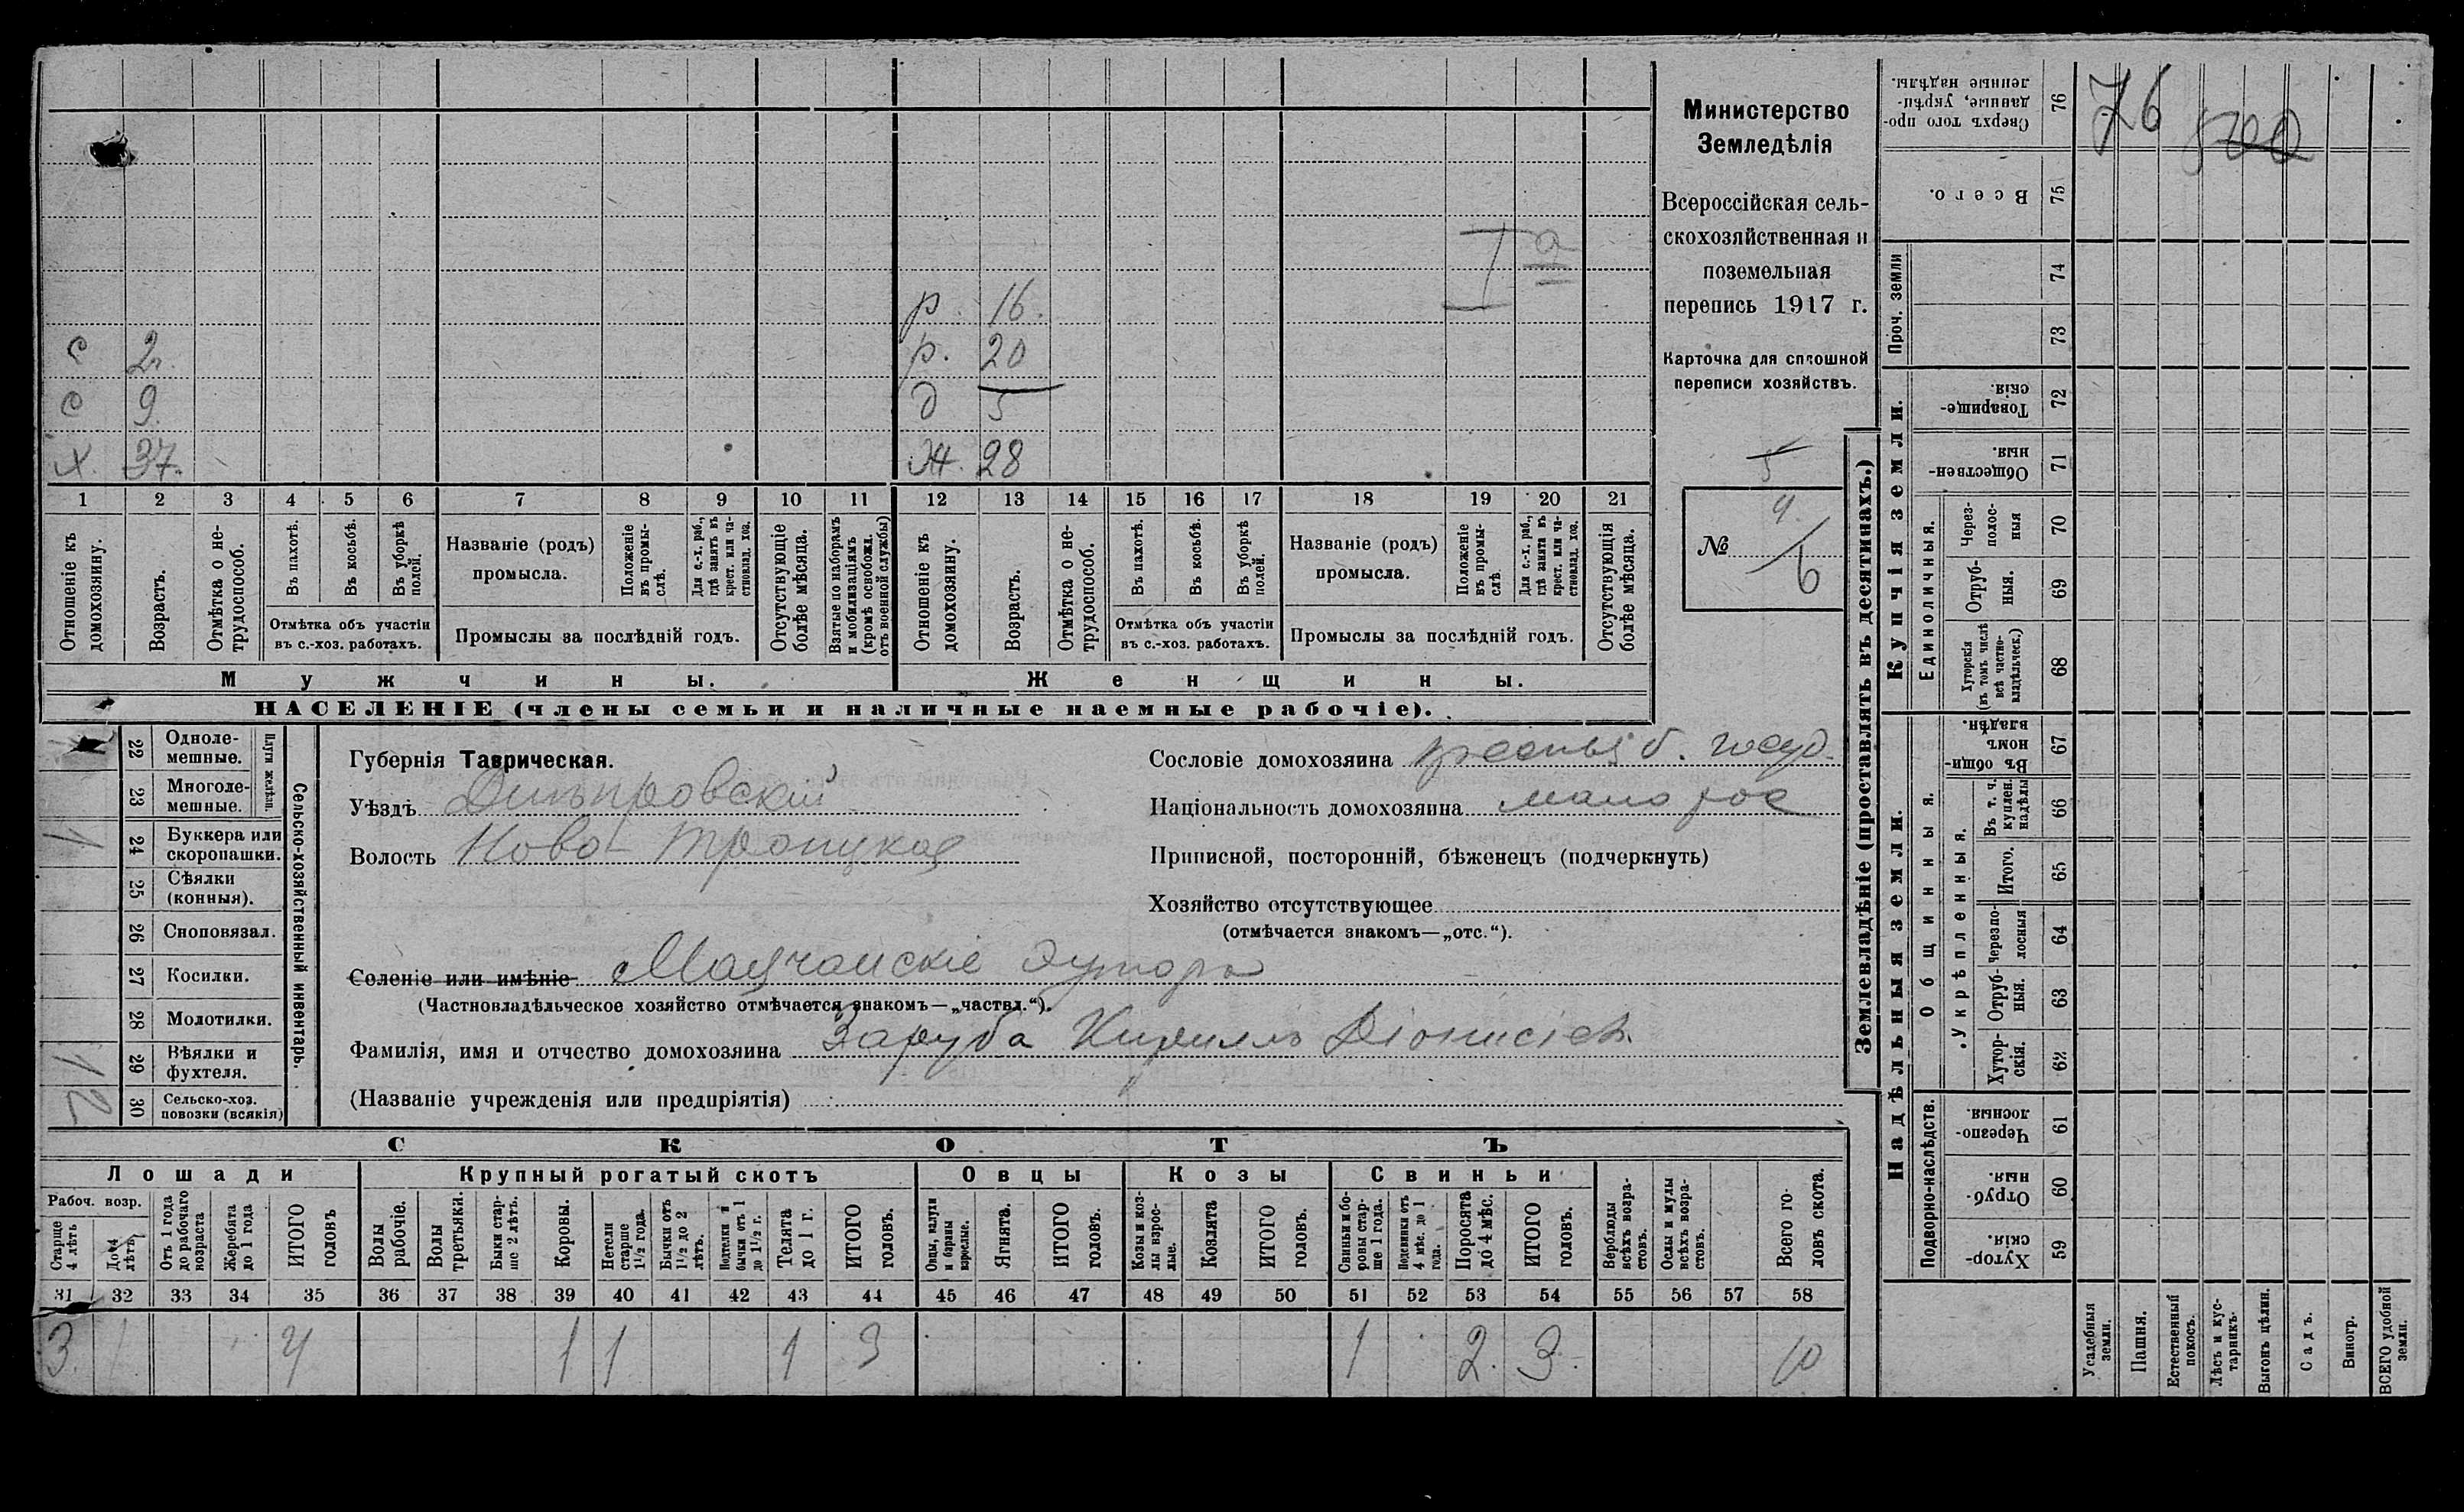 Министерство
Земледѣлія
Всероссійская сель-
скохозяйственная и
поземельная
перепись 1917 г.
Карточка для сплошной
переписи хозяйствъ.
5
№ 4/6
I а
р. 16.
с 2. р. 20
с 9 д 5
х. 37. Ж. 28
1 2 3 4 5 6 7 8 9 10 11 12 13 14 15 16 17 18 19 20 21
Отношеніе къ домохозяину.
Возрастъ.
Отмѣтка о не-трудоспособ.
Въ пахотѣ.
Въ косьбѣ.
Въ уборкѣ полей.
Отмѣтка объ участіи
въ с.-хоз. работахъ.
Названіе (родъ)
промысла.
Положеніе въ промы-слѣ.
Для с.-х. раб., гдѣ занятъ въ крест. или ча-стновлад. хоз.
Промыслы за послѣдній годъ.
Отсутствующіе болѣе мѣсяца.
Взятые по наборамъ и мобилизаціямъ (кромѣ освобожд. отъ военной службы)
Отношеніе къ домохозяину.
Возрастъ.
Отмѣтка о не-трудоспособ.
Въ пахотѣ.
Въ косьбѣ.
Въ уборкѣ полей.
Отмѣтка объ участіи
въ с.-хоз. работахъ.
Названіе (родъ)
промысла.
Положеніе въ промы-слѣ
Для с.-х. раб., гдѣ занята въ крест. или ча-стновлад. хоз.
Промыслы за послѣдній годъ.
Отсутствующія болѣе мѣсяца.
Мужчины. Женщины.
НАСЕЛЕНІЕ (члены семьи и наличные наемные рабочіе).
Сельско-хозяйственный инвентарь.
Плуги желѣзн.
22 Одноле-мешные.
23 Многоле-мешные.
1 24 Буккера или скоропашки.
25 Сѣялки (конныя).
26 Сноповязал.
27 Косилки.
28 Молотилки.
1 29 Вѣялки и фухтеля.
2 30 Сельско-хоз. повозки (всякія)
Губернія Таврическая.
Уѣздъ Днѣпровскій
Волость Ново-Троицкая
Сословіе домохозяина крестьян б. госуд.
Національность домохозяина малорос
Приписной, посторонній, бѣженецъ (подчеркнуть)
Хозяйство отсутствующее
(отмѣчается знакомъ—„отс.“).
Селеніе или имѣніе Маячанскіе Хутора
(Частновладѣльческое хозяйство отмѣчается знакомъ—„частвл.“).
Фамилія, имя и отчество домохозяина Заруба Кириллъ Діонисіев.
(Названіе учрежденія или предпріятія)
СКОТЪ
Лошади Крупный рогатый скотъ Овцы Козы Свиньи
Рабоч. возр.
Старше 4 лѣтъ
До 4 лѣтъ
Отъ 1 года до рабочаго возраста
Жеребята до 1 года
ИТОГО головъ
Волы рабочіе.
Волы третьяки.
Быки стар-ше 2 лѣтъ.
Коровы.
Нетели старше 1½ года.
Бычки отъ 1½ до 2 лѣтъ.
Подтелки и бычки отъ 1 до 1½ г.
Телята до 1 г.
ИТОГО головъ.
Овцы, валухи и бараны взрослые.
Ягнята.
ИТОГО головъ.
Козы и коз-лы взрос-лые.
Козлята
ИТОГО головъ.
Свиньи и бо-ровы стар-ше 1 года.
Подсвинки отъ 4 мѣс. до 1 года.
Поросята до 4 мѣс.
ИТОГО головъ.
Верблюды всѣхъ возра-стовъ.
Ослы и мулы всѣхъ возра-стовъ.
Всего го-ловъ скота.
31 32 33 34 35 36 37 38 39 40 41 42 43 44 45 46 47 48 49 50 51 52 53 54 55 56 57 58
3. 1 4 1 1 1 3 1 2. 3. 10
Землевладѣніе (проставлять въ десятинахъ.)
Купчія земли.
Надѣльныя земли.
76 Сверхъ того про-данные, укрѣп-ленные надѣлы. 76
75 Всего.
Проч. земли
74
73
72 Товарище-скія.
71 Обществен-ныя.
Единоличныя.
70 Через-полос-ныя
69 Отруб-ныя.
68 Хуторскія (въ томъ числѣ всѣ частно-владѣльческ.)
Общинныя.
67 Въ общи-номъ владѣн.
Укрѣпленныя.
66 Въ т. ч. куплен. надѣлы
65 Итого.
64 Черезпо-лосныя
63 Отруб-ныя.
62 Хутор-скія.
Подворно-наслѣдств.
61 Черезпо-лосныя.
60 Отруб-ныя.
59 Хутор-скія.
Усадебныя земли.
Пашня.
Естественный покосъ.
Лѣсъ и кус-тарникъ.
Выгонъ цѣлин.
Садъ.
Виногр.
ВСЕГО удобной земли.